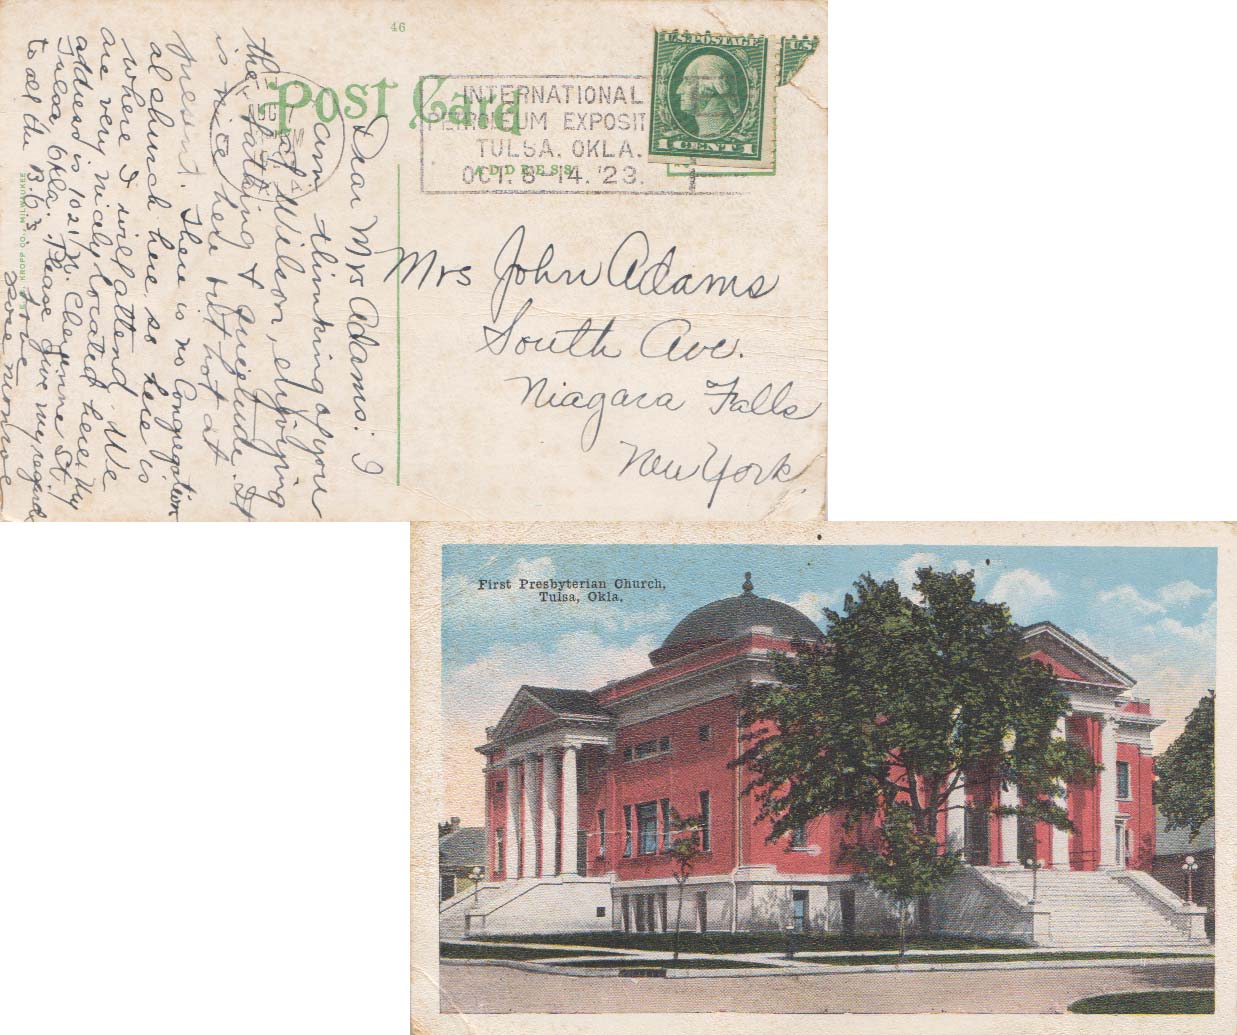 46
Post Card
ADDRESS
INTERNATIONAL
PETROLEUM EXPOSIT
TULSA, OKLA.
OCT. 8-14. '23.
U.S. POSTAGE
1 CENT 1
U.S
KROPP CO., MILWAUKEE
Mrs John Adams
South Ave.
Niagara Falls
New York.
Dear Mrs Adams: I
am thinking of you
at Wilson, enjoying
the bathing & quietude. It
is nice here but hot at
present. There is no Congregation
al church here, so here is
where I will attend. We
are very nicely located here. My
address is 1021 N. Cheyenne St.
Tulsa Okla. Please give my regards
to all the B.G.'s. Love
Rose Monroe
First Presbyterian Church,
Tulsa, Okla.